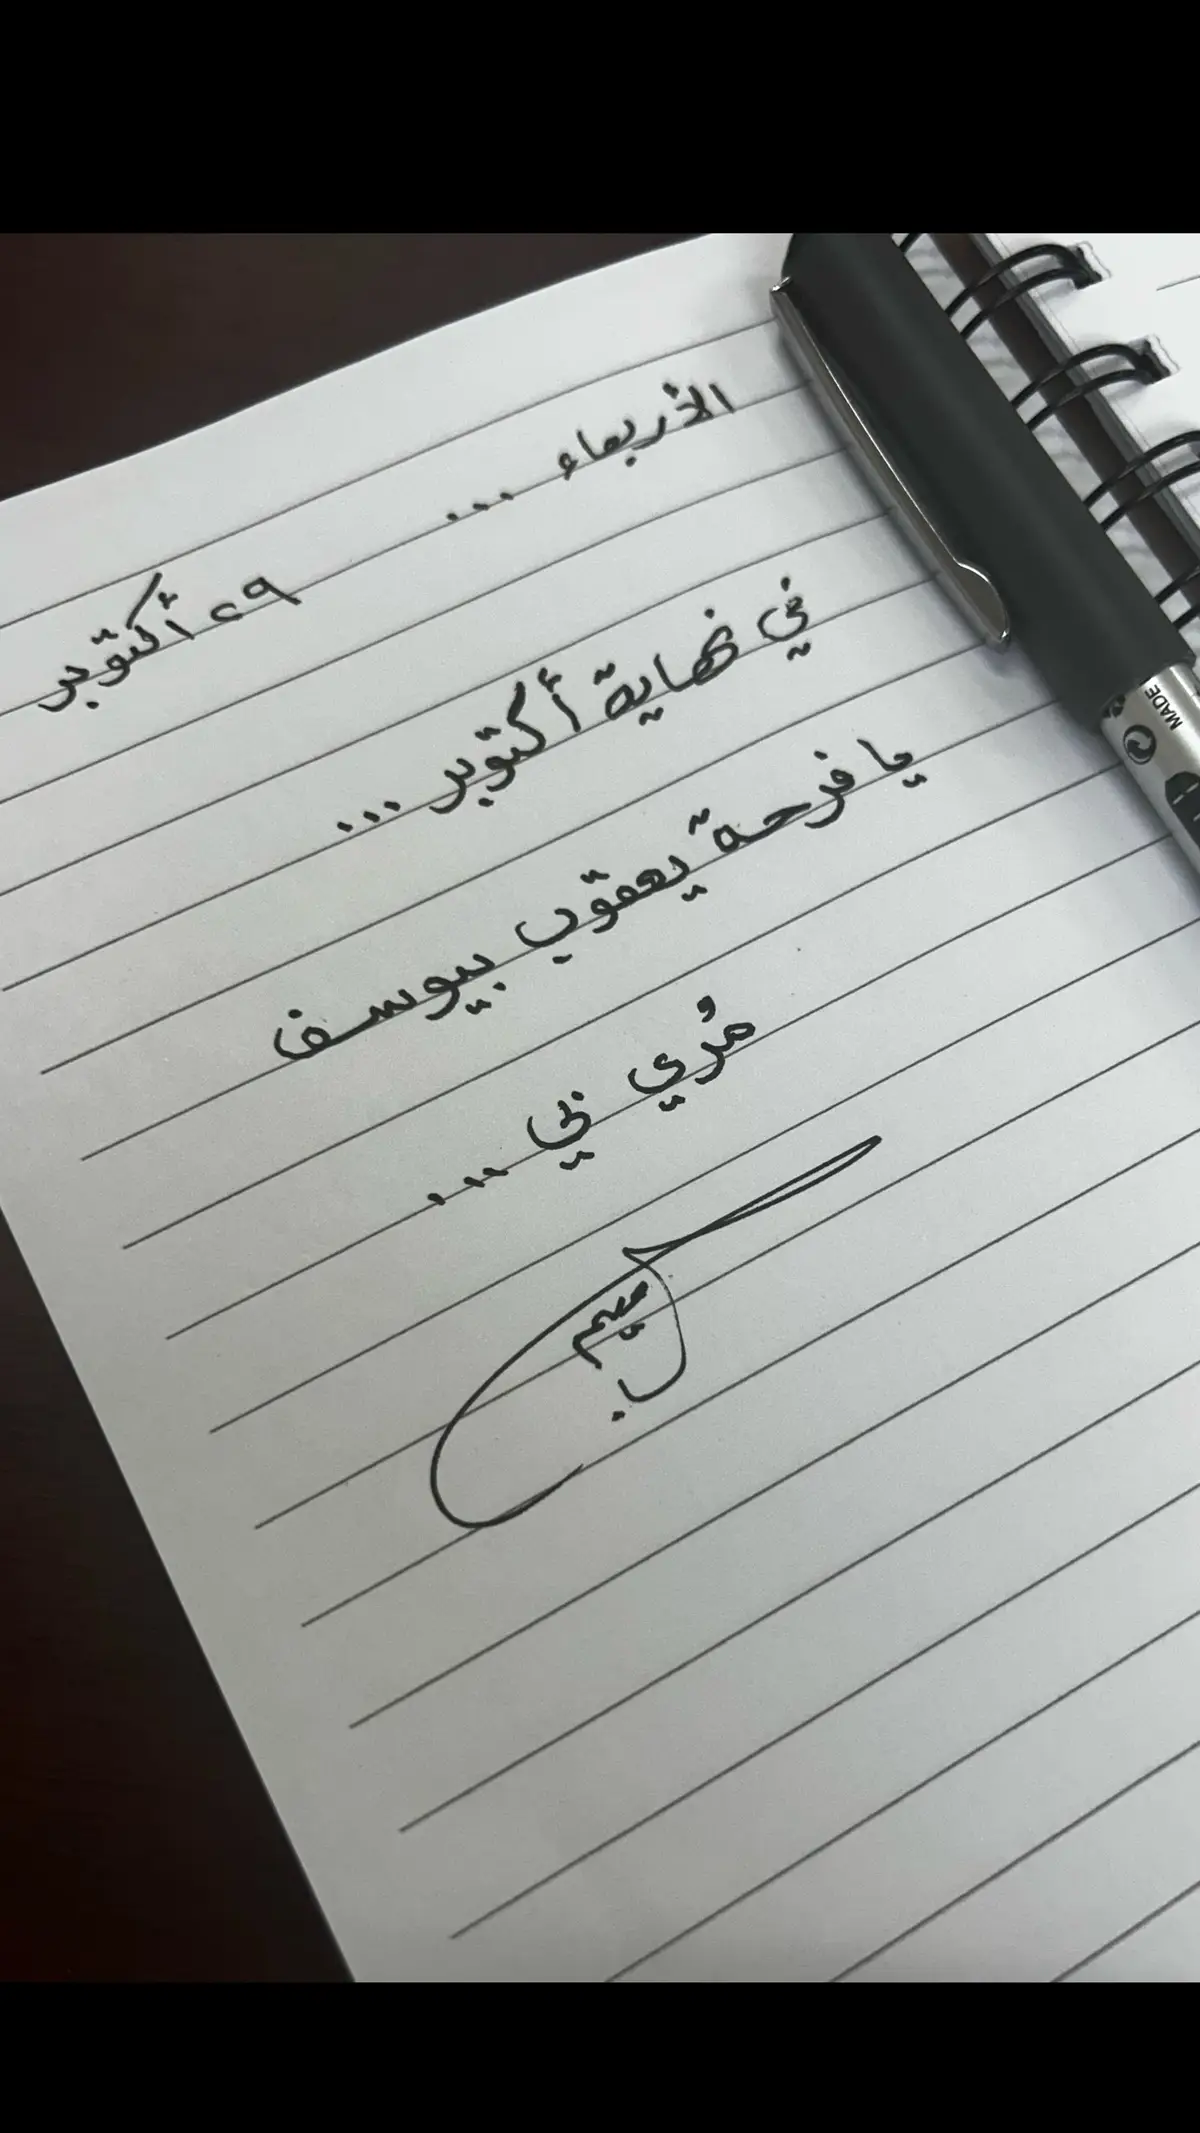 الأربعاء ...
٢٩ أكتوبر
في نهاية أكتوبر ...
يا فرحة يعقوب بيوسف
مُرّي بي ...
ميم
MADE